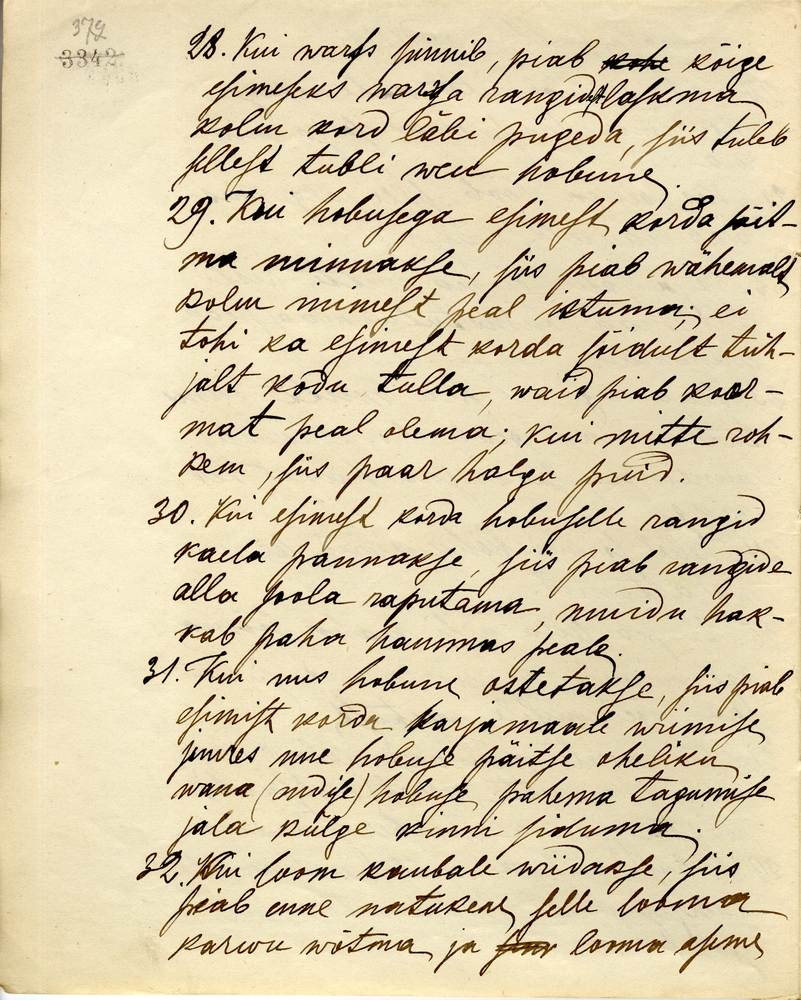 379
3342
28. Kui wars sünnib, piab kohe kõige
esimeseks warsa rangidest laskma
kolm kord läbi pugeda, siis tuleb
sellest tubli weu hobune.
29. Kui hobusega esimest korda sõit-
ma minnakse, siis piab wähemalt
kolm inimest peal istuma; ei
tohi ka esimest korda sõidult tüh-
jalt kodu tulla, waid piab koor-
mat peal olema; kui mitte roh-
kem, siis paar halgu puid.
30. Kui esimest korda hobuselle rangid
kaela pannakse, siis piab rangide
alla soola raputama, muidu hak-
kab paha hammas peale.
31. Kui uus hobune ostetakse, siis piab
esimist korda karjamaale wiimise
juures uue hobuse päitse oheliku
wana (endise) hobuse pahema tagumise
jala külge kinni siduma.
32. Kui loom kaubale wiidakse, siis
piab enne natukene selle looma
karwu wõtma ja looma aseme